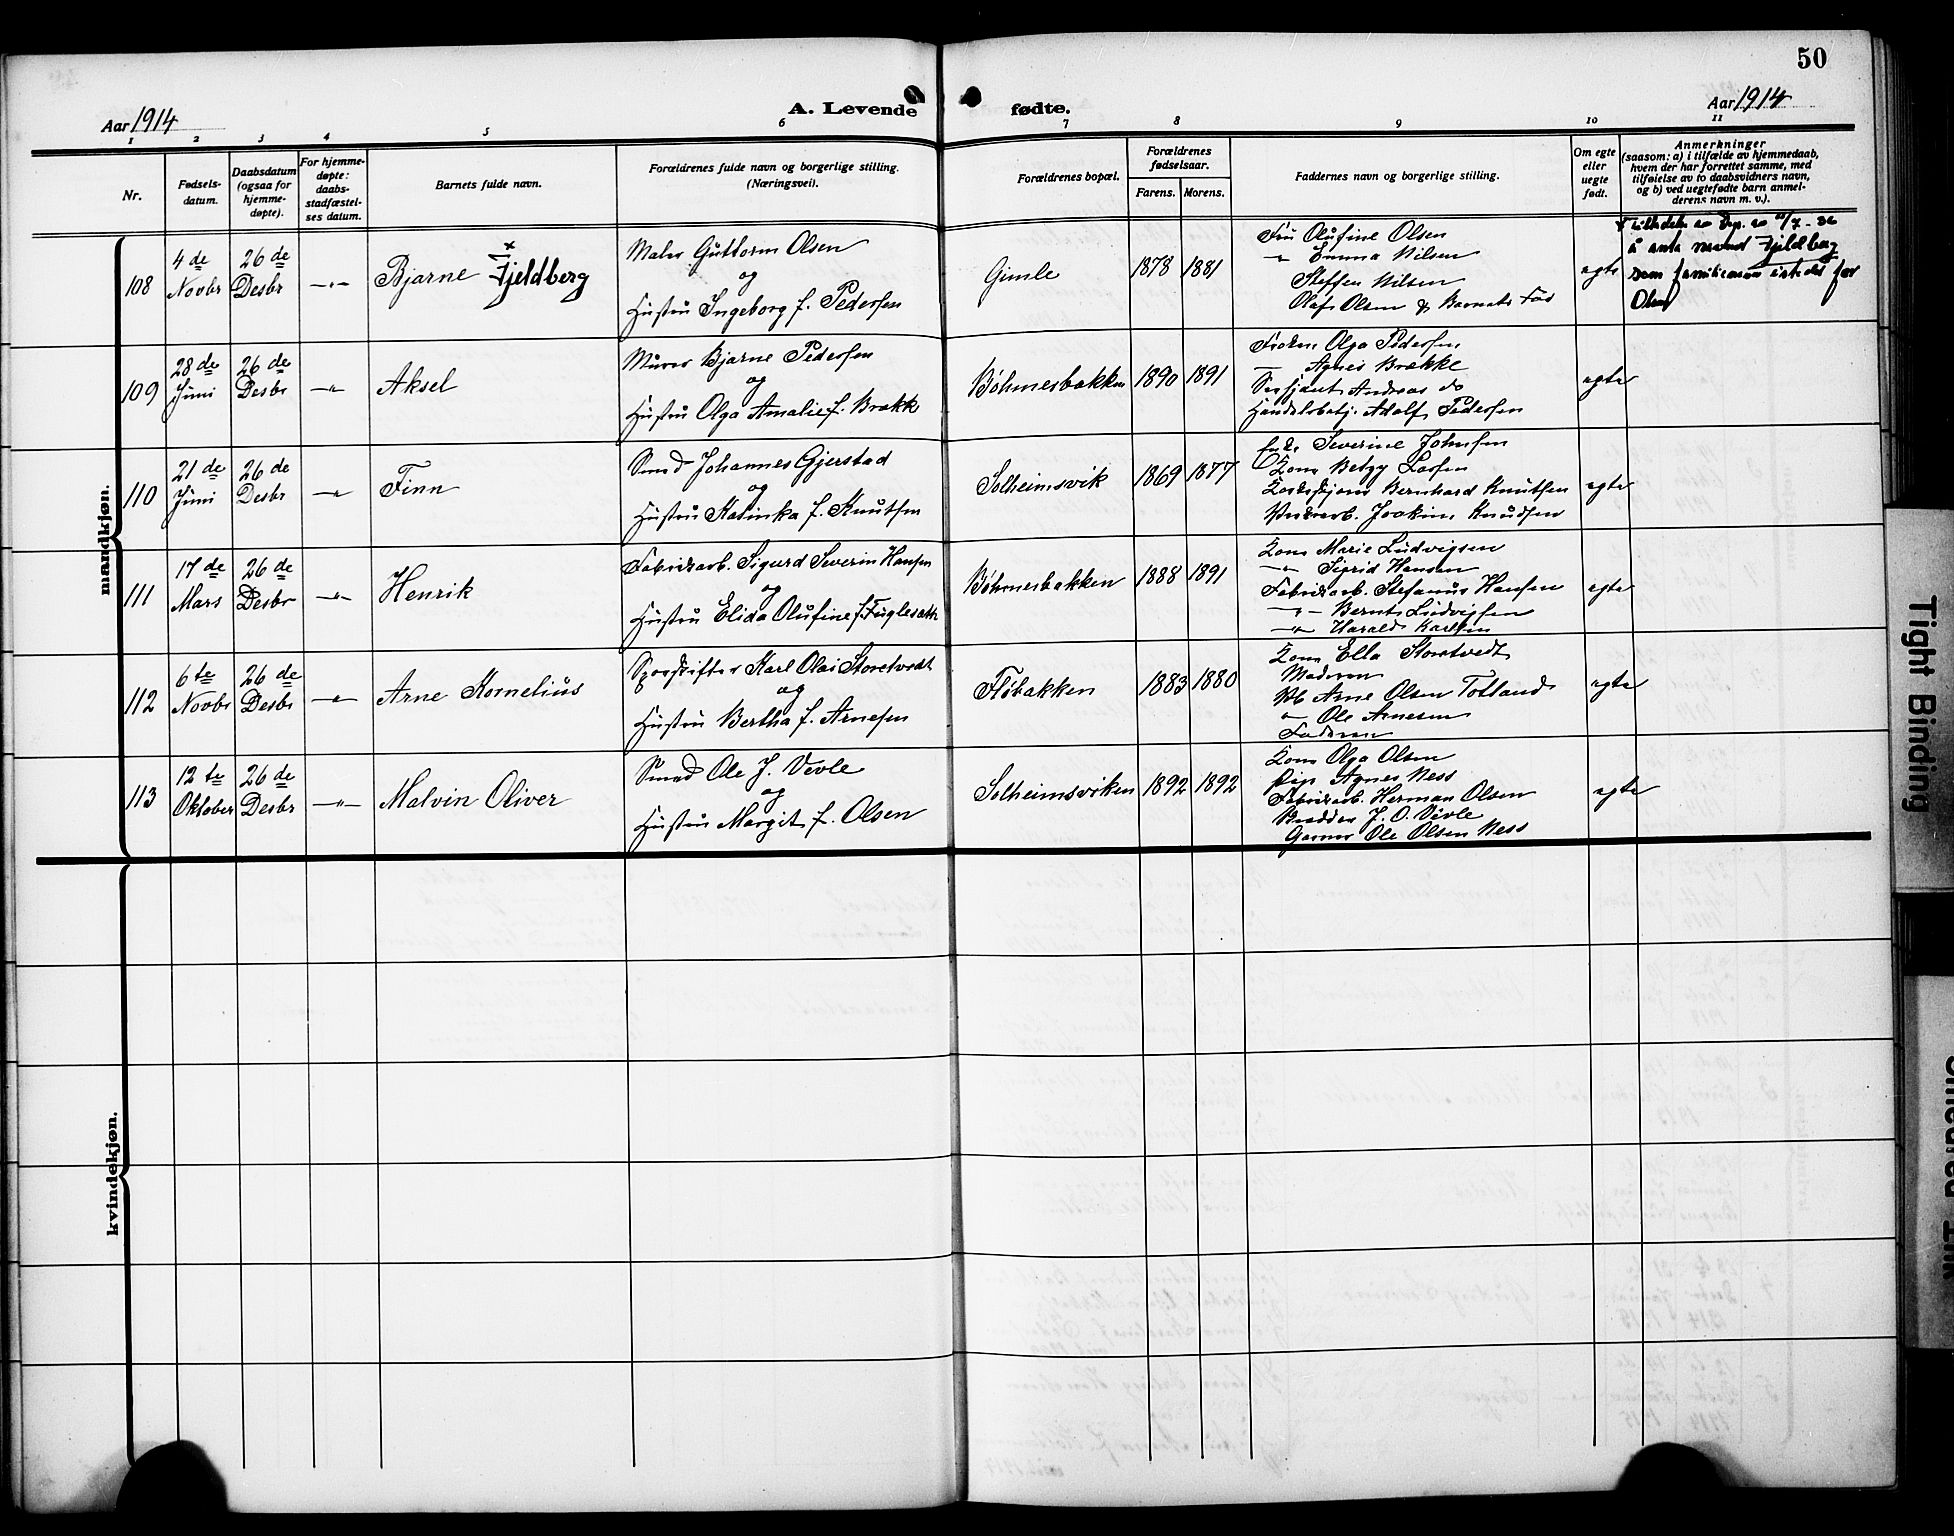 50
Aar 1914
A. Levende fødte.
Aar 1914
1 2 3 4 5 6 7 8 9 10 11
Nr.
Fødsels-
datum.
Daabsdatum
(ogsaa for
hjemme-
døpte).
For hjemme-
døpte:
daabs-
stadfæstel-
ses datum.
Barnets fulde navn.
Forældrenes fulde navn og borgerlige stilling.
(Næringsvei).
Forældrenes bopæl.
Forældrenes
fødselsaar.
Farens. Morens.
Faddernes navn og borgerlige stilling.
Om egte
eller
uegte
født.
Anmerkninger
(saasom: a) i tilfælde av hjemmedaab,
hvem der har forrettet samme, med
tilføielse av to daabsvidners navn,
og b) ved uegtefødte barn anmel-
derens navn m. v.).
mandkjøn.
108
4 de
Novbr
26 de
Desbr
—"—
Bjarne Fjeldberg
x
Maler Guttorm Olsen
og
Hustru Ingeborg f. Pedersen
Gimle
1878 1881
Fru Olufine Olsen
—"— Emma Nilsen
Steffen Nilsen
Olaf Olsen & Barnets Far
egte
å anta navnet Fjeldberg
som familienavn istedet for
Olsen
109
28 de
Juni
26 de
Desbr
—"—
Aksel
Murer Bjarne Pedersen
og
Hustru Olga Amalie f. Brækk
Bøhmerbakken
1890 1891
Frøken Olga Pedersen
— Agnes Brække
Serjant Andreas do
Handelsbetj. Adolf Pedersen
egte
110
21 de
Juni
26 de
Desbr
—"—
Finn
Smed Johannes Gjerstad
og
Hustru Kasinka f. Knutsen
Solheimsvik
1869 1877
Enke Severine Johnsen
Kone Betzy Larsen
Bernhard Knutsen
Joakim Knudsen
egte
111
17 de
Mars
26 de
Desbr
—"—
Henrik
Fabrikarb. Sigurd Severin Hansen
og
Hustru Elida Olufine f. Fuglesæth
Bøhmerbakken
1888 1891
Kone Marie Ludvigsen
—"— Sigrid Hansen
Fabrikarb. Stefanus Hansen
—"— Bernt Ludvigsen
—"— Harald Karlsen
egte
112
6 te
Novbr
26 de
Desbr
—"—
Arne Kornelius
Sporskifter Karl Olai Storetvedt
og
Hustru Bertha f. Arnesen
Fløbakken
1883 1880
Kone Ella Storetvedt
Moderen
Arne Olsen Totland
—"— Ole Arnesen
Faderen
egte
113
12 te
Oktober
26 de
Desbr
—"—
Malvin Oliver
Smed Ole J. Vevle
og
Hustru Margit f. Olsen
Solheimsviken
1892 1892
Kone Olga Olsen
Pige Agnes Ness
Fabrikarb. Herman Olsen
J. O. Vevle
Garver Ole Olsen Ness
egte
kvindekjøn.
Tight Binding